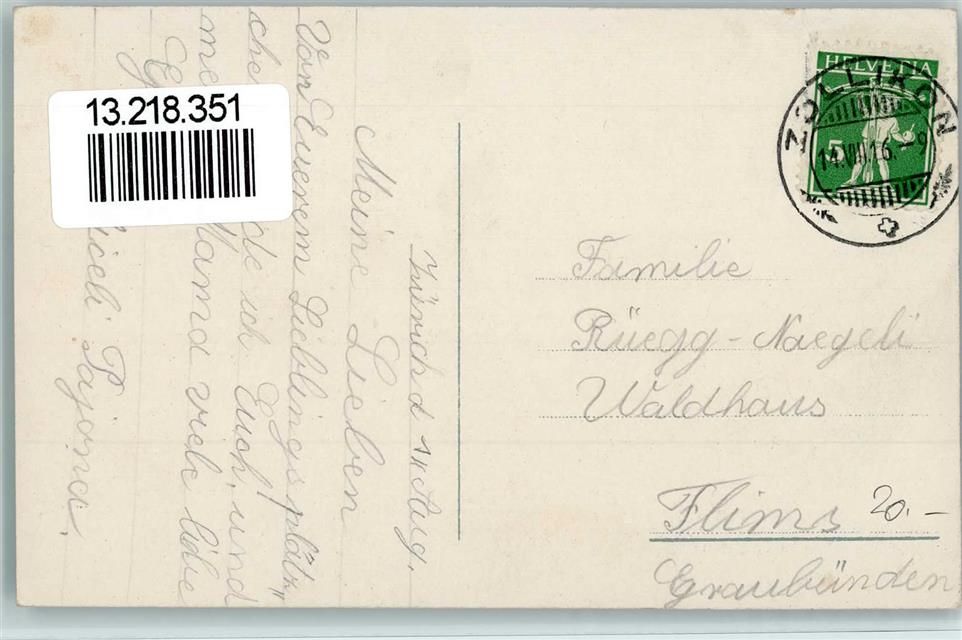 13.218.351
HELVETIA
5
ZOLLIKON
14.VIII.16.-9
Zürich d 14 Aug.
Meine Lieben
Von Euerem Lieblingsplätz"
che de ich Euch, und
me Mama viele liebe
Pajona.
Familie
Rüegg-Naegeli
Waldhaus
Flims
20.-
Graubünden